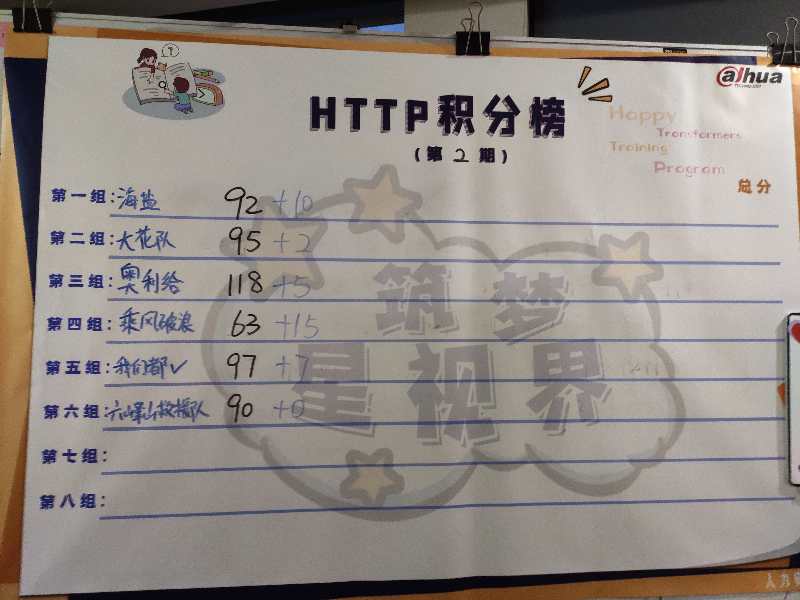 alhua
HTTP积分榜
(第2期)
Happy
Transformers
Training
Program
总分
第一组：海盐 92 +10
第二组：大花队 95 +2
第三组：奥利给 118 +5
第四组：乘风破浪 63 +15
第五组：我们都✓ 97 +7
第六组：六峰山救援队 90 +0
第七组：
第八组：
筑梦
星视界